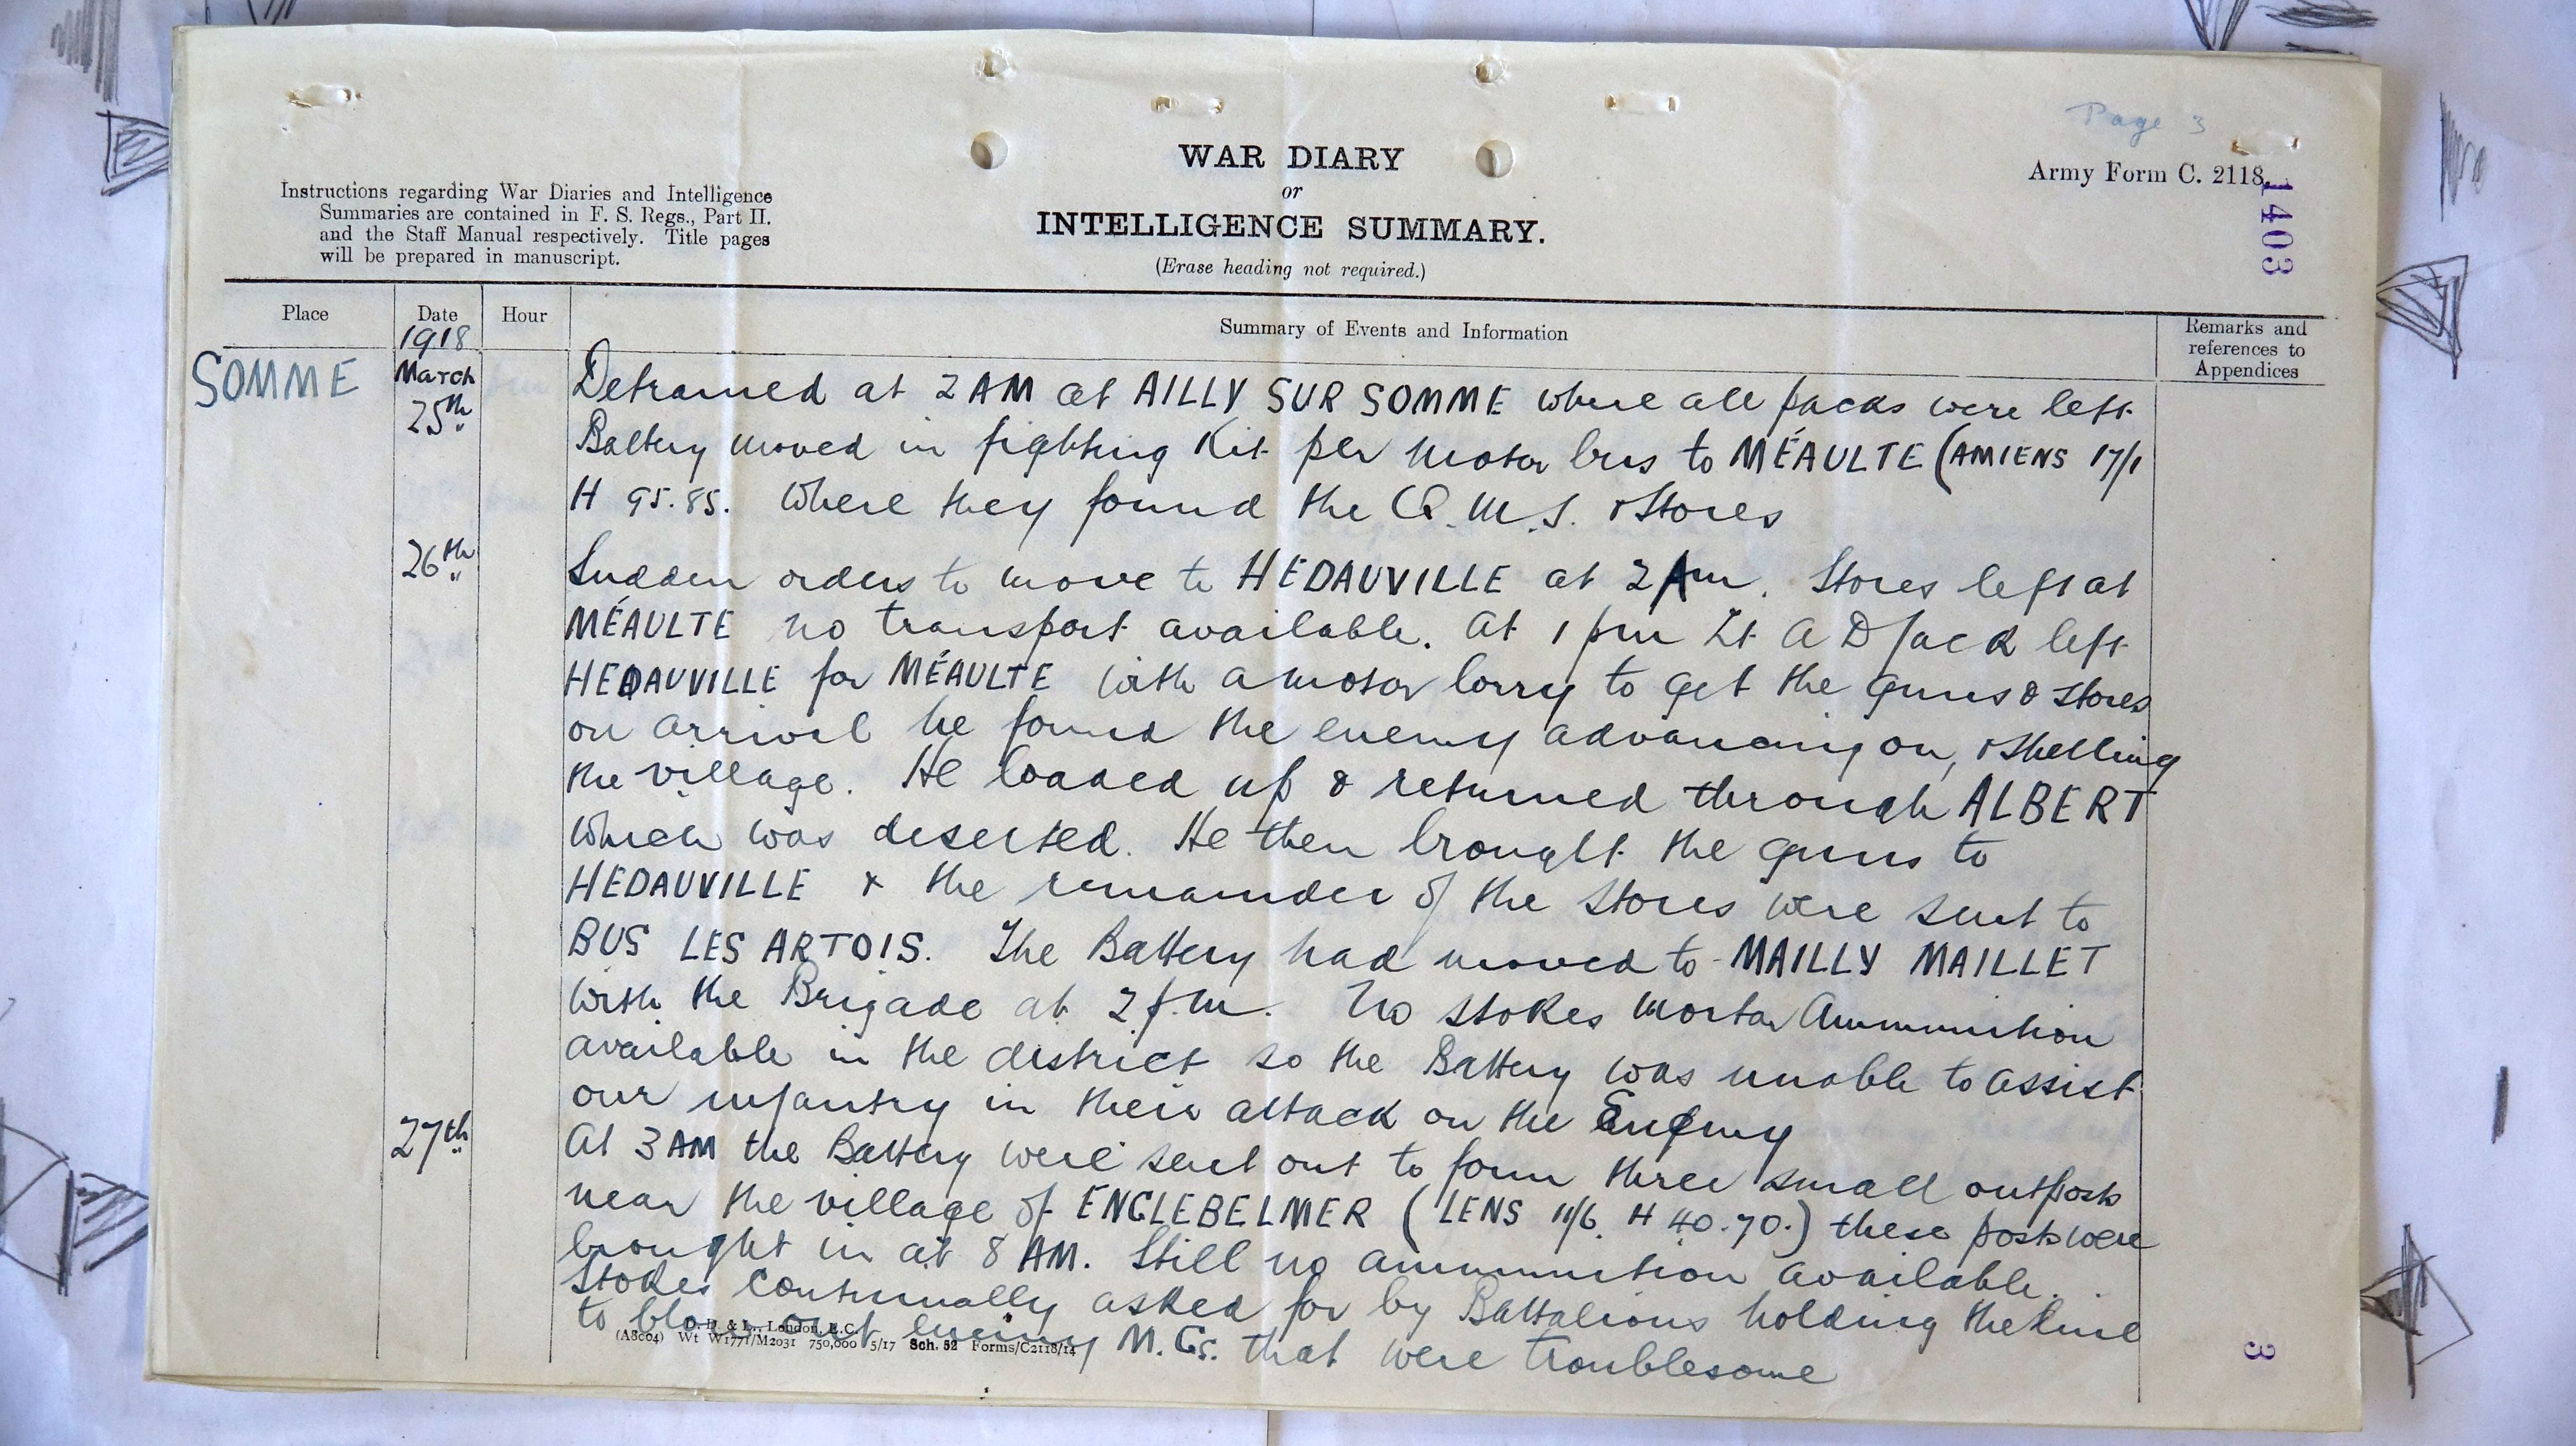 Page 3
Army Form C. 2118.
1403
WAR DIARY
or
INTELLIGENCE SUMMARY.
(Erase heading not required.)
Instructions regarding War Diaries and Intelligence
Summaries are contained in F. S. Regs., Part II.
and the Staff Manual respectively. Title pages
will be prepared in manuscript.
Place
Date
Hour
Summary of Events and Information
Remarks and
references to
Appendices
1918
SOMME
March
25th
Detrained at 2 AM at AILLY SUR SOMME where all packs were left
Battery moved in fighting Kit per motor bus to MÉAULTE (AMIENS 17/1
H 95.85. Where they found the Q.M.S. & Stores
26th
Sudden orders to move to HEDAUVILLE at 2 Am. Stores left at
MÉAULTE no transport available. At 1 pm Lt A D Jack left
HEDAUVILLE for MÉAULTE with a motor lorry to get the guns & stores
on arrival he found the enemy advancing on, & shelling
the village. He loaded up & returned through ALBERT
which was deserted. He then brought the guns to
HEDAUVILLE & the remainder of the stores were sent to
BUS LES ARTOIS. The Battery had moved to MAILLY MAILLET
with the Brigade at 2 p.m. No Stokes Mortar Ammunition
available in the district so the Battery was unable to assist
our infantry in their attack on the Enemy
27th
At 3 AM the Battery were sent out to form three small outposts
near the village of ENGLEBELMER (LENS 11/6. H 40.70.) these posts were
brought in at 8 AM. Still no ammunition available.
Stokes continually asked for by Battalions holding the line
to blow out enemy M.Gs. that were troublesome
D. D. & L., London, E.C.
(A8604) Wt W1771/M2031 750,000 5/17 Sch. 52 Forms/C2118/14
3